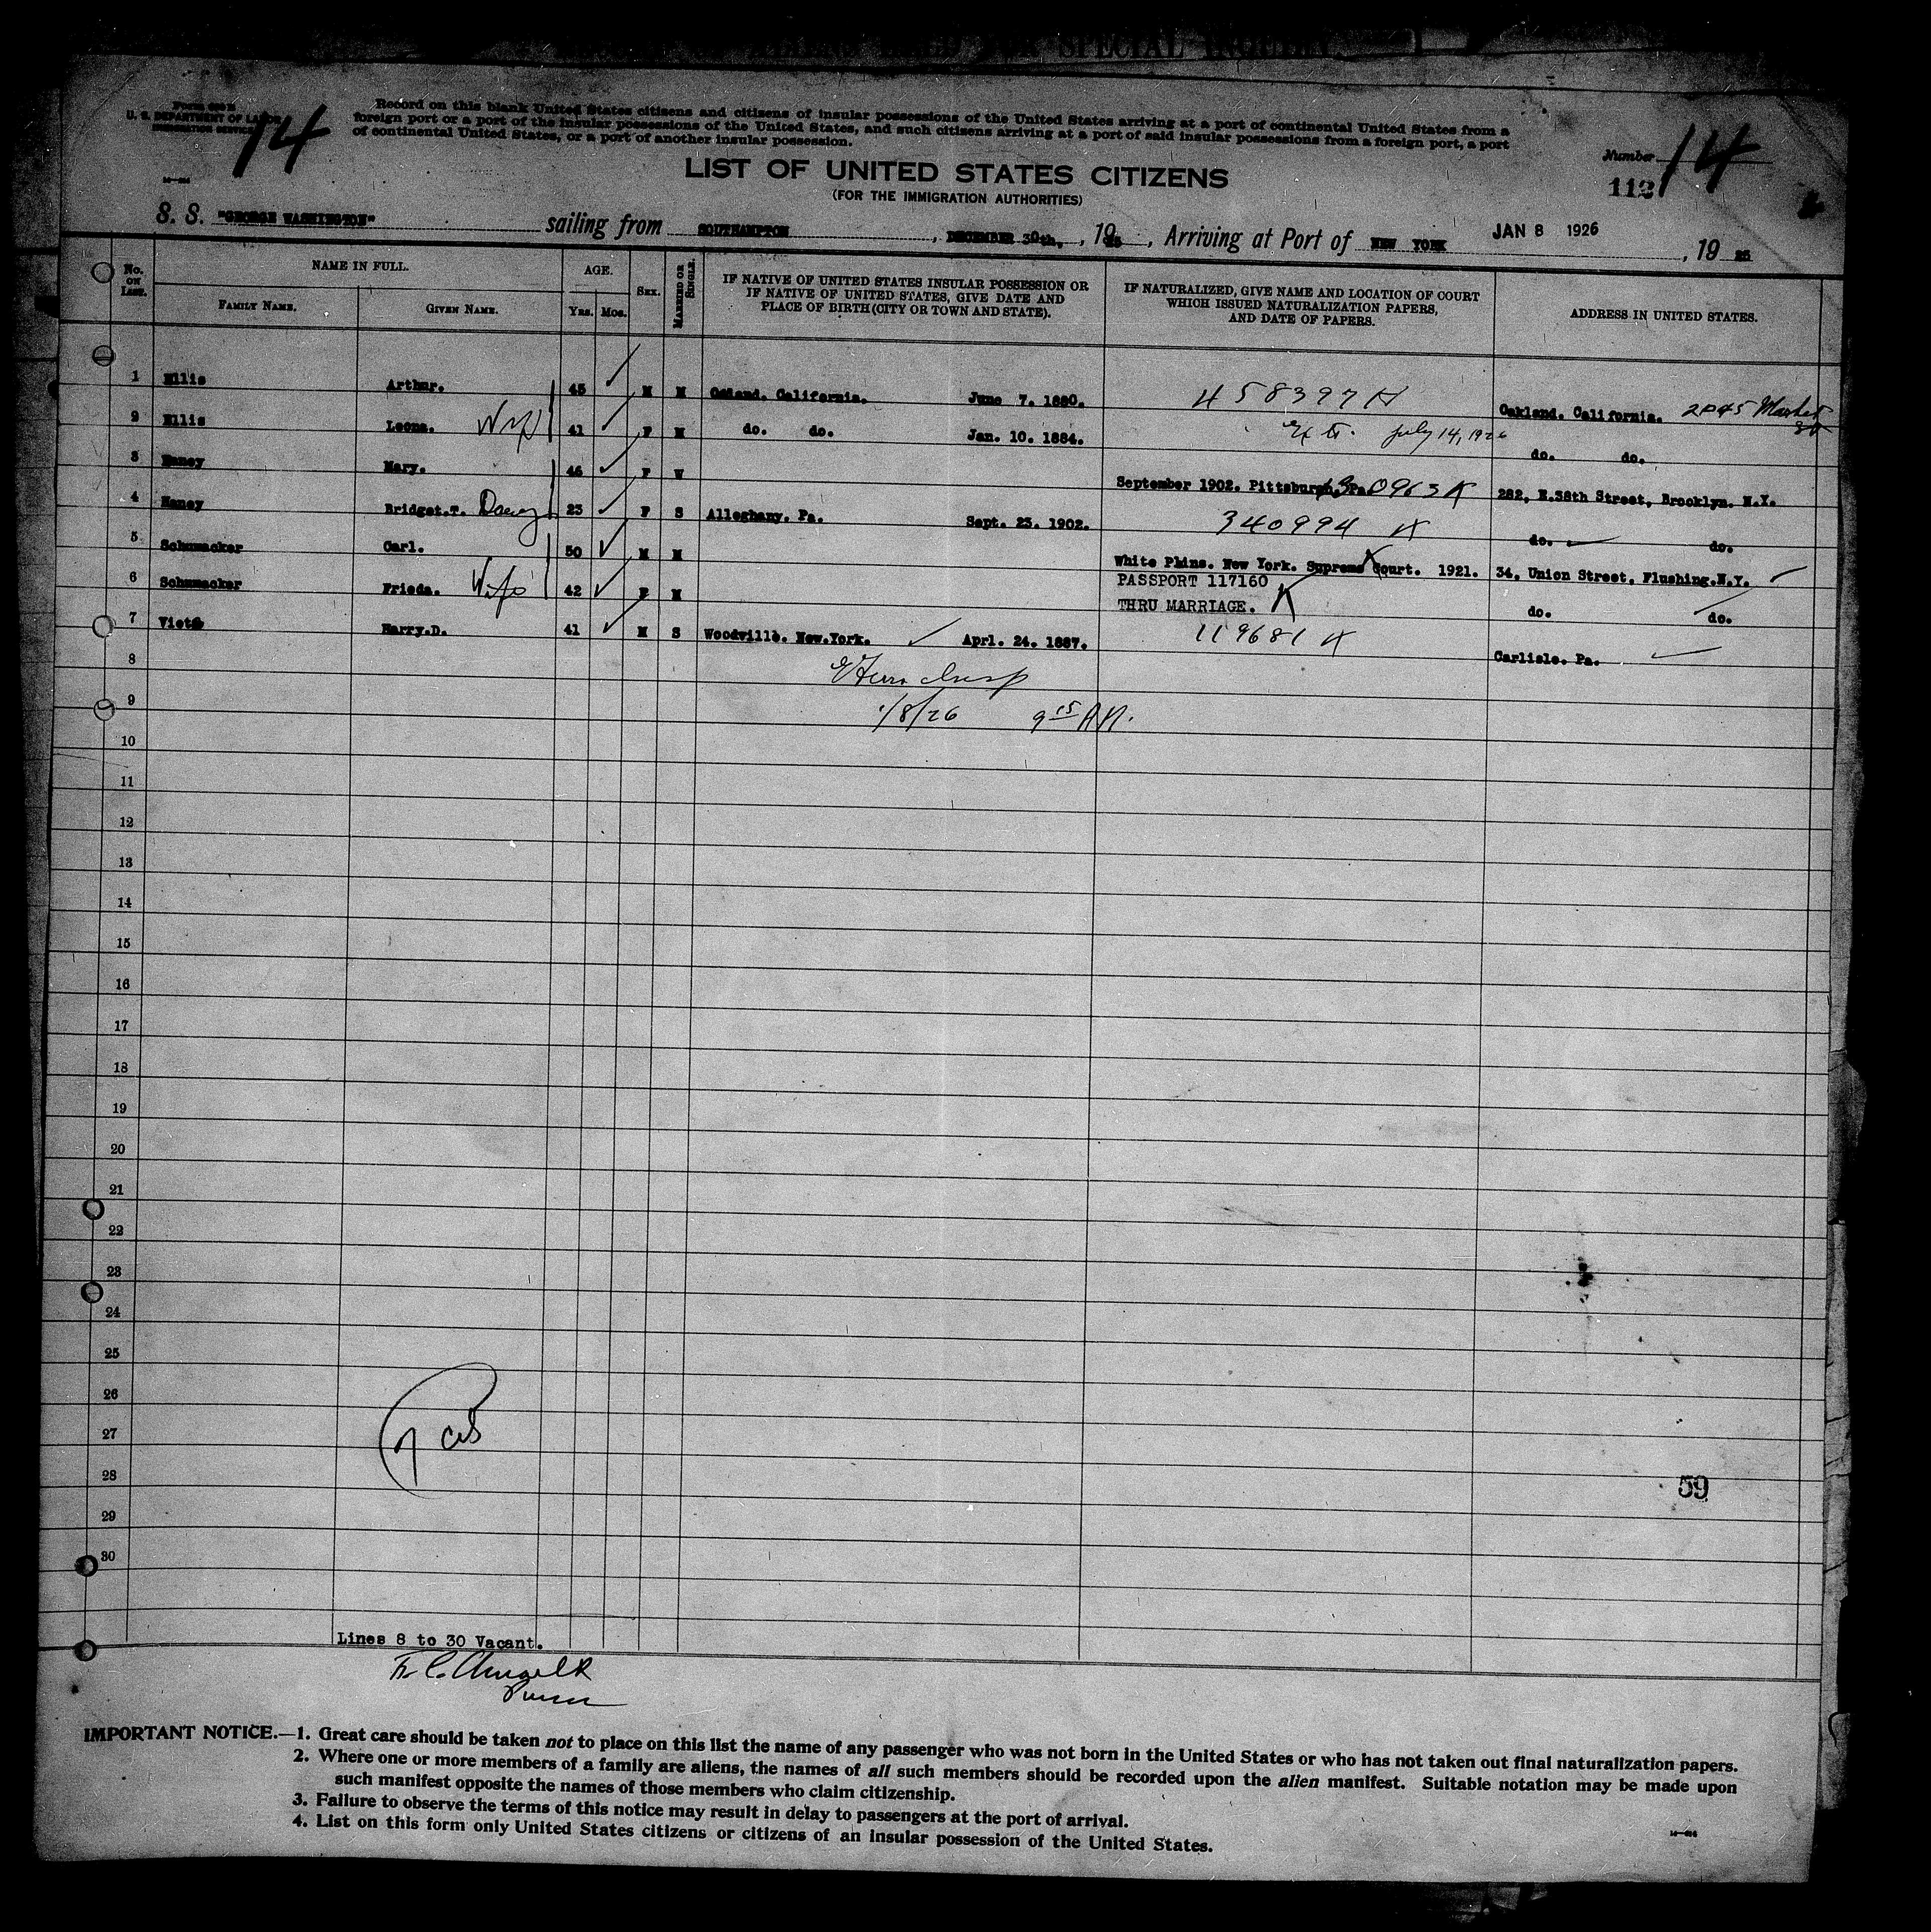 Form 630 B
U. S. DEPARTMENT OF LABOR
IMMIGRATION SERVICE
14
Record on this blank United States citizens and citizens of insular possessions of the United States arriving at a port of continental United States from a
foreign port or a port of the insular possessions of the United States, and such citizens arriving at a port of said insular possessions from a foreign port, a port
of continental United States, or a port of another insular possession.
Number 14
112
LIST OF UNITED STATES CITIZENS
(FOR THE IMMIGRATION AUTHORITIES)
S. S. "GEORGE WASHINGTON" sailing from SOUTHAMPTON, DECEMBER 30th., 1925, Arriving at Port of NEW YORK JAN 8 1926, 19
No. ON LIST. NAME IN FULL. FAMILY NAME. GIVEN NAME. AGE. Yrs. Mos. SEX. MARRIED OR SINGLE. IF NATIVE OF UNITED STATES INSULAR POSSESSION OR IF NATIVE OF UNITED STATES, GIVE DATE AND PLACE OF BIRTH (CITY OR TOWN AND STATE). IF NATURALIZED, GIVE NAME AND LOCATION OF COURT WHICH ISSUED NATURALIZATION PAPERS, AND DATE OF PAPERS. ADDRESS IN UNITED STATES.
1 Ellis Arthur. 45 M M Oakland. California. June 7. 1880. 458397 Oakland. California. 2045 Market St
2 Ellis Leona. Wife 41 F M do. do. Jan. 10. 1884. July 14, 1926 do. do.
3 Haney Mary. 46 F W September 1902. Pittsburgh. Pa. 282, E.38th Street, Brooklyn. N.Y.
4 Haney Bridget.T. 23 F S Alleghany. Pa. Sept. 23. 1902. 340994 do. do.
5 Schumacker Carl. 50 M M White Plains. New York. Supreme Court. 1921. 34, Union Street, Flushing.N.Y.
PASSPORT 117160
6 Schumacker Frieda. Wife 42 F M THRU MARRIAGE. do. do.
7 Harry.D. 41 M S Woodville. New.York. Aprl. 24. 1887. 119681 Carlisle. Pa.
8
1/8/26 9 15 A.M.
9
10
11
12
13
14
15
16
17
18
19
20
21
22
23
24
25
26
27
28
59
29
30
Lines 8 to 30 Vacant.
IMPORTANT NOTICE.—1. Great care should be taken not to place on this list the name of any passenger who was not born in the United States or who has not taken out final naturalization papers.
2. Where one or more members of a family are aliens, the names of all such members should be recorded upon the alien manifest. Suitable notation may be made upon
such manifest opposite the names of those members who claim citizenship.
3. Failure to observe the terms of this notice may result in delay to passengers at the port of arrival.
4. List on this form only United States citizens or citizens of an insular possession of the United States.